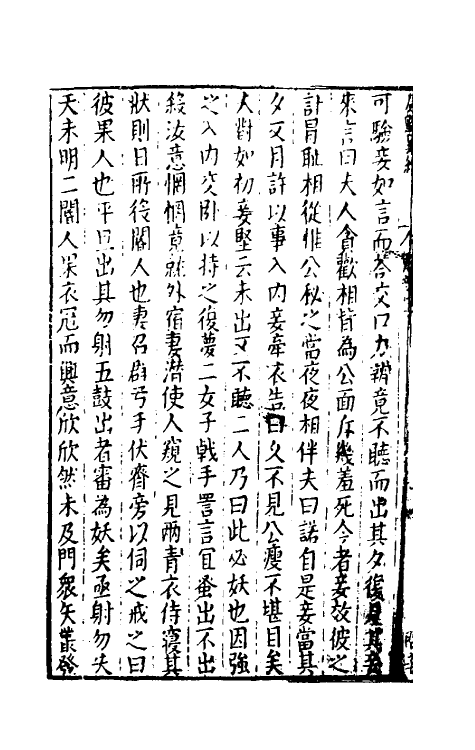 可驗妾如言而答交口力辨竟不聽而出其夕復是其妾
來言曰夫人貪歡相皆為公面斥幾羞死今者妾故彼之
計冐耻相從惟公秘之當夜夜相伴夫曰諾自是妾當其
夕又月許以事入内妾牽衣告曰久不見公瘦不堪目矣
人對如初妾堅云未出又不聽二人乃曰此必妖也因強
之入内交卧以持之復夢二女子戟手詈言冝蚤出不出
殺汝意惘惘竟趂外宿妻潛使人窺之見兩青衣侍寢其
狀則日所役閽人也妻召群弓手伏齋旁以伺之戒之曰
彼果人也平旦出其勿射五鼓出者審為妖矣亟射勿失
天未明二閽人杲衣冠而興意欣欣然未及門衆矢叢發